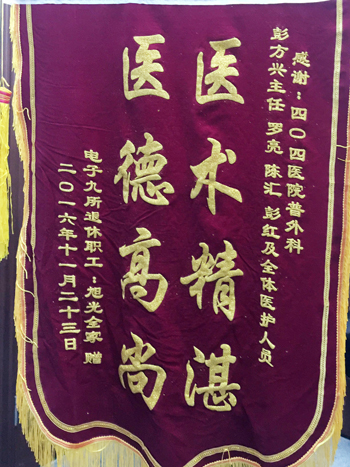 感谢：四〇四医院普外科
彭方兴主任 罗亮 陈汇 彭红及全体医护人员
医术精湛
医德高尚
电子九所退休职工：旭光全家 赠
二〇一六年十一月二十三日